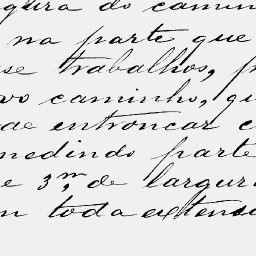 gura do camin
na parte que
se trabalhos, p
vo caminho, qu
de entroncar c
medindo parte
e 3,m de largura
m toda extensã